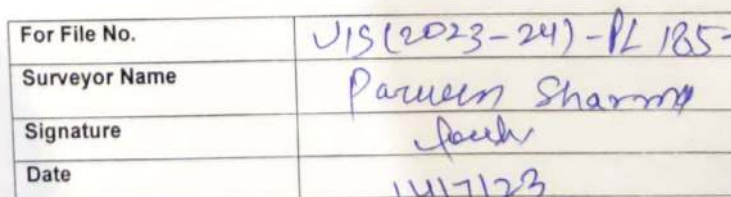 For File No. VIS(2023-24)-PL 185-
Surveyor Name Parveen Sharma
Signature
Date 14/7/23